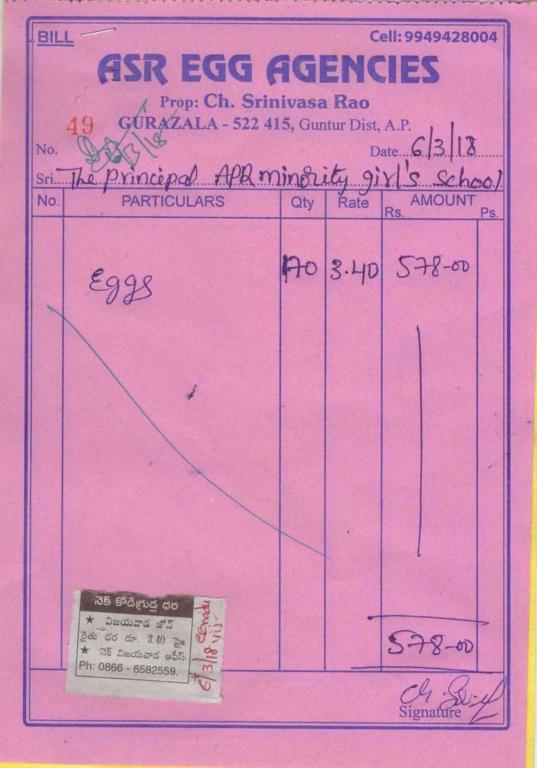 BILL
Cell: 9949428004
ASR EGG AGENCIES
Prop: Ch. Srinivasa Rao
GURAZALA - 522 415, Guntur Dist, A.P.
No. 49
Date 6/3/18
Sri. The principal APR minority girl's school
No. PARTICULARS Qty Rate AMOUNT
Rs. Ps.
Eggs 170 3.40 578-00
నెక్ కోడిగ్రుడ్ల ధర
★ విజయవాడ జోన్
రైతు ధర రూ. 3.40 పై
★ నెక్ విజయవాడ ఆఫీస్
Ph: 0866 - 6582559.
6/3/18
578-00
Signature